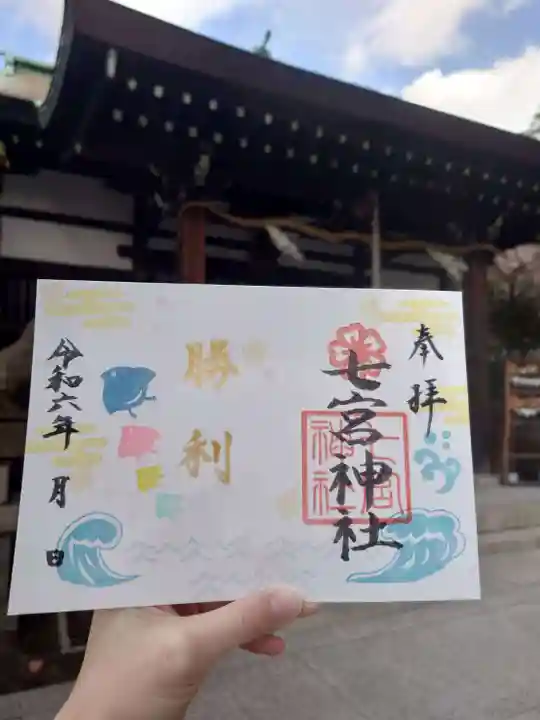 奉拝
七宮神社
七宮
神社
勝利
令和六年 月 日